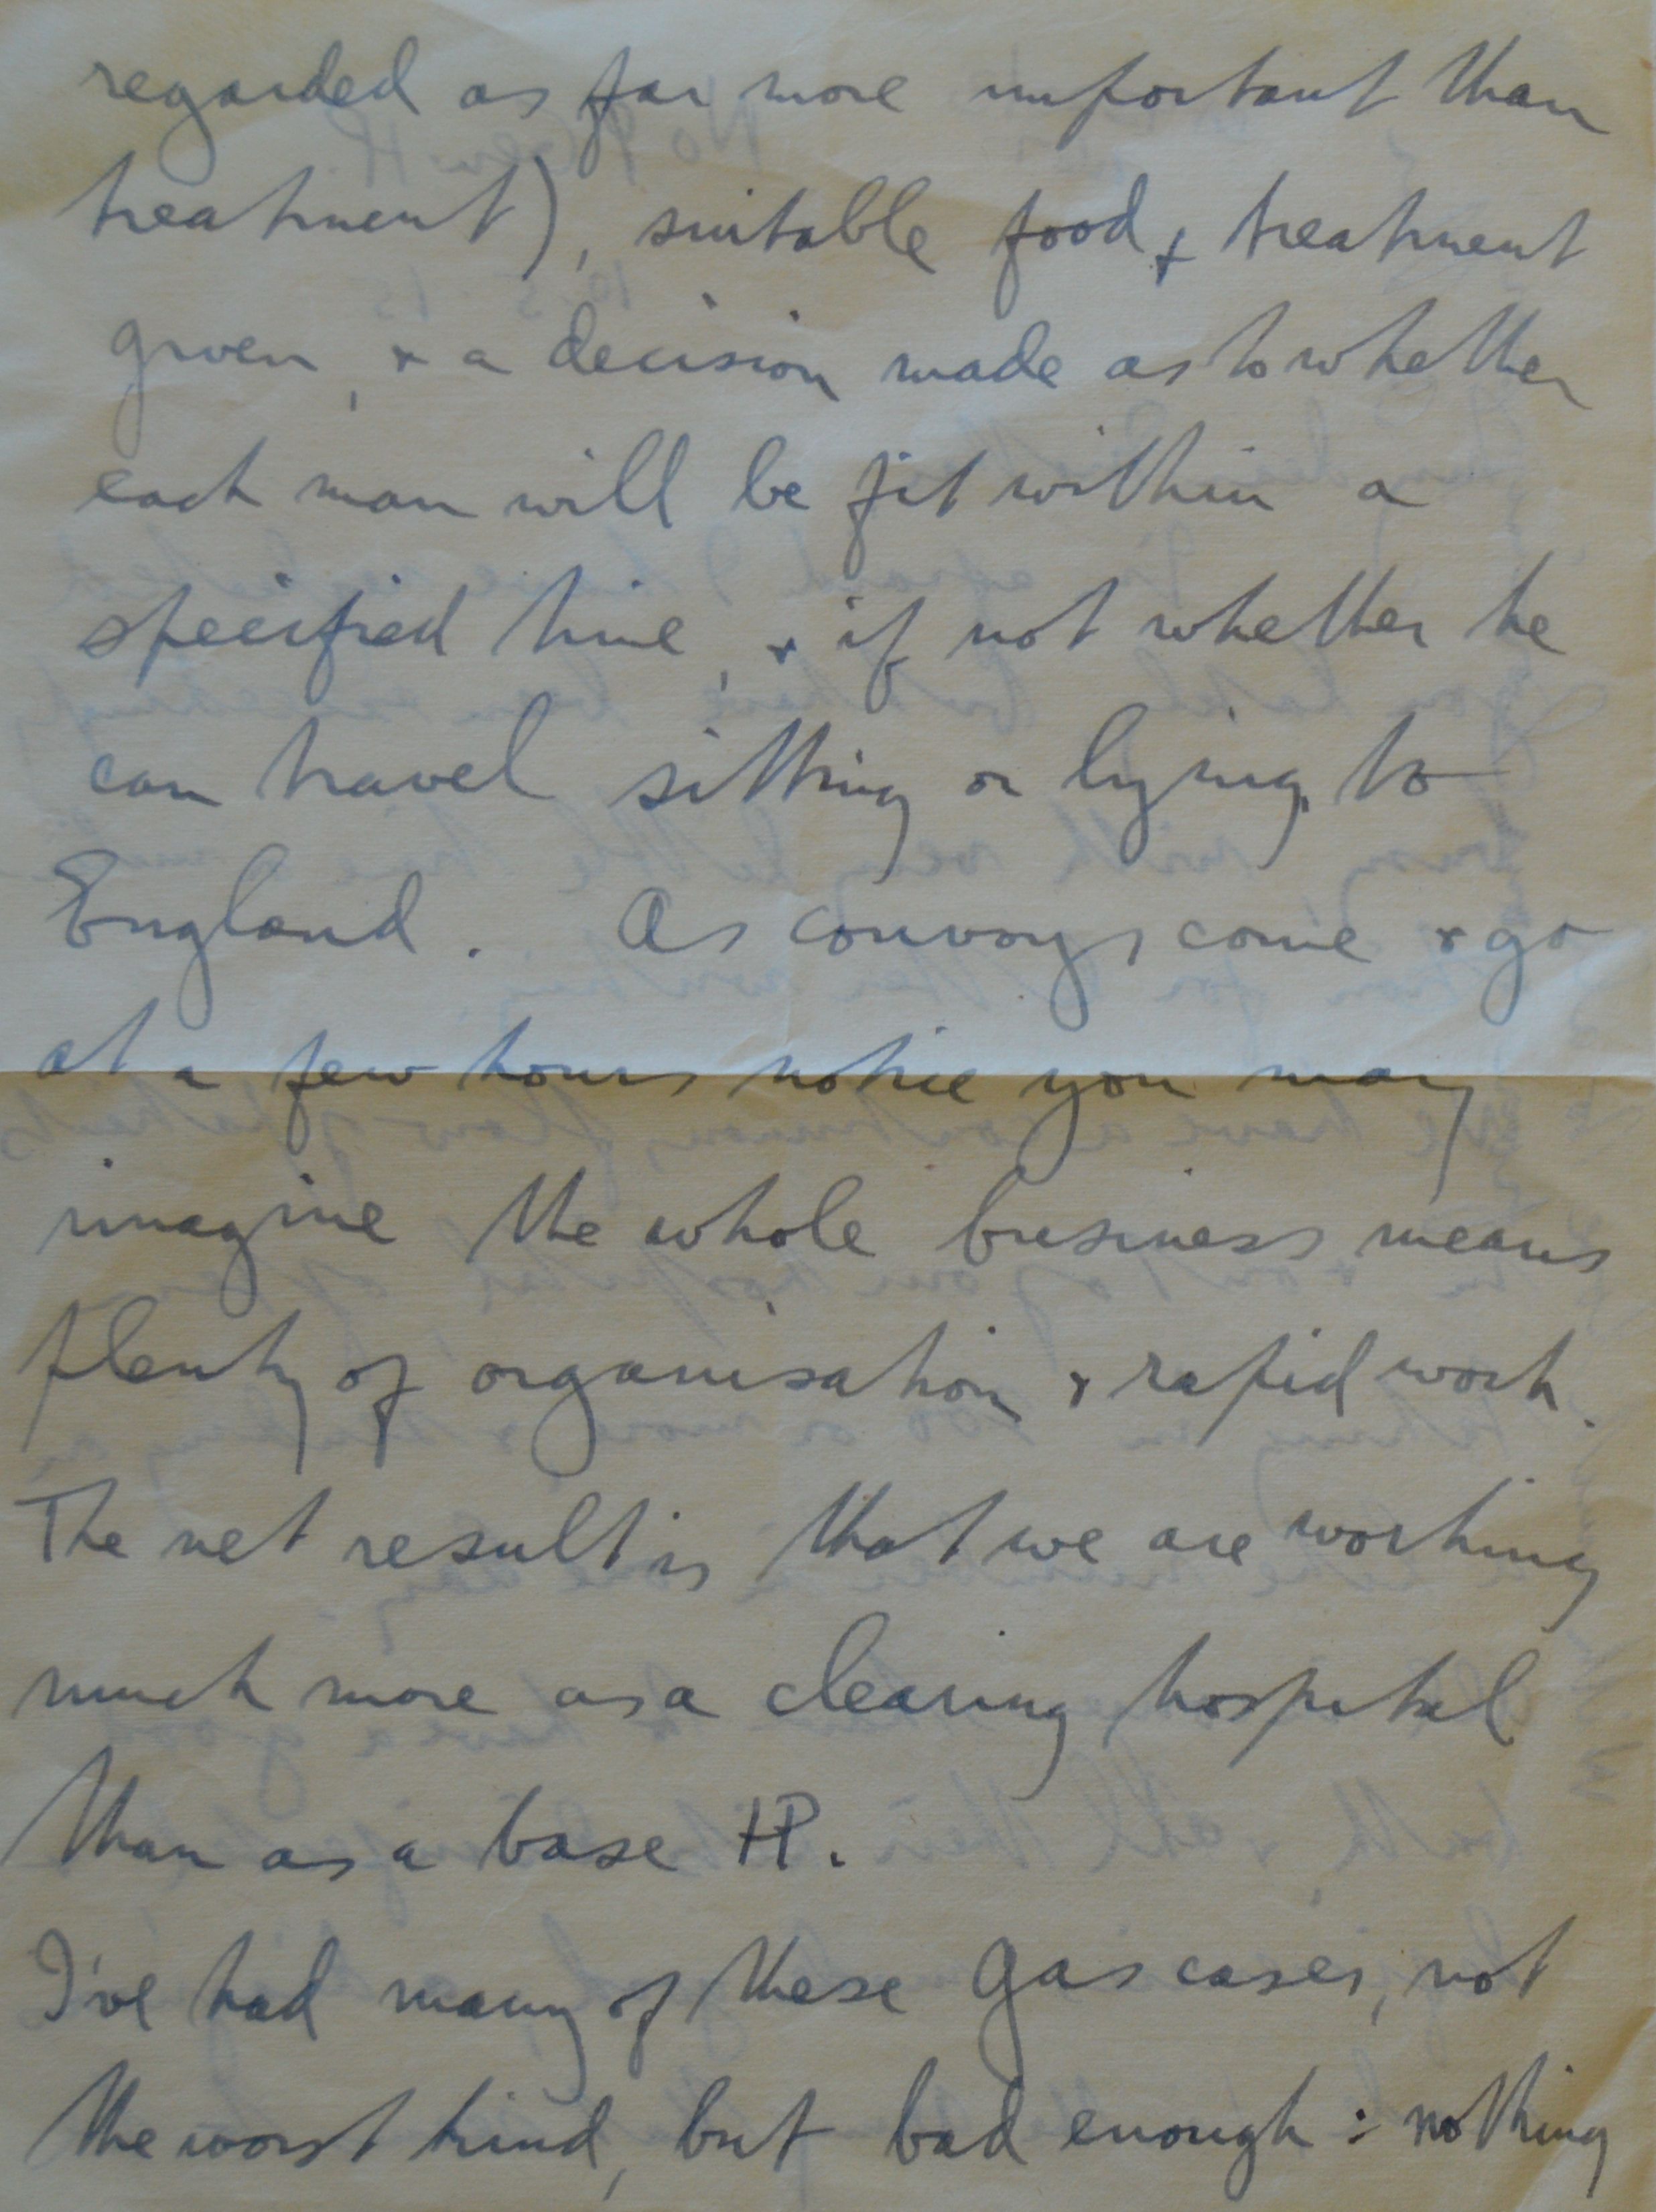 regarded as far more important than
treatment), suitable food, & treatment
given, & a decision made as to whether
each man will be fit within a
specified time, & if not whether he
can travel sitting or lying to
England. As convoys come & go
at a few hours notice you may
imagine the whole business means
plenty of organisation & rapid work.
The net result is that we are working
much more as a clearing hospital
than as a base HP.
I've had many of these gas cases, not
the worst kind, but bad enough : nothing